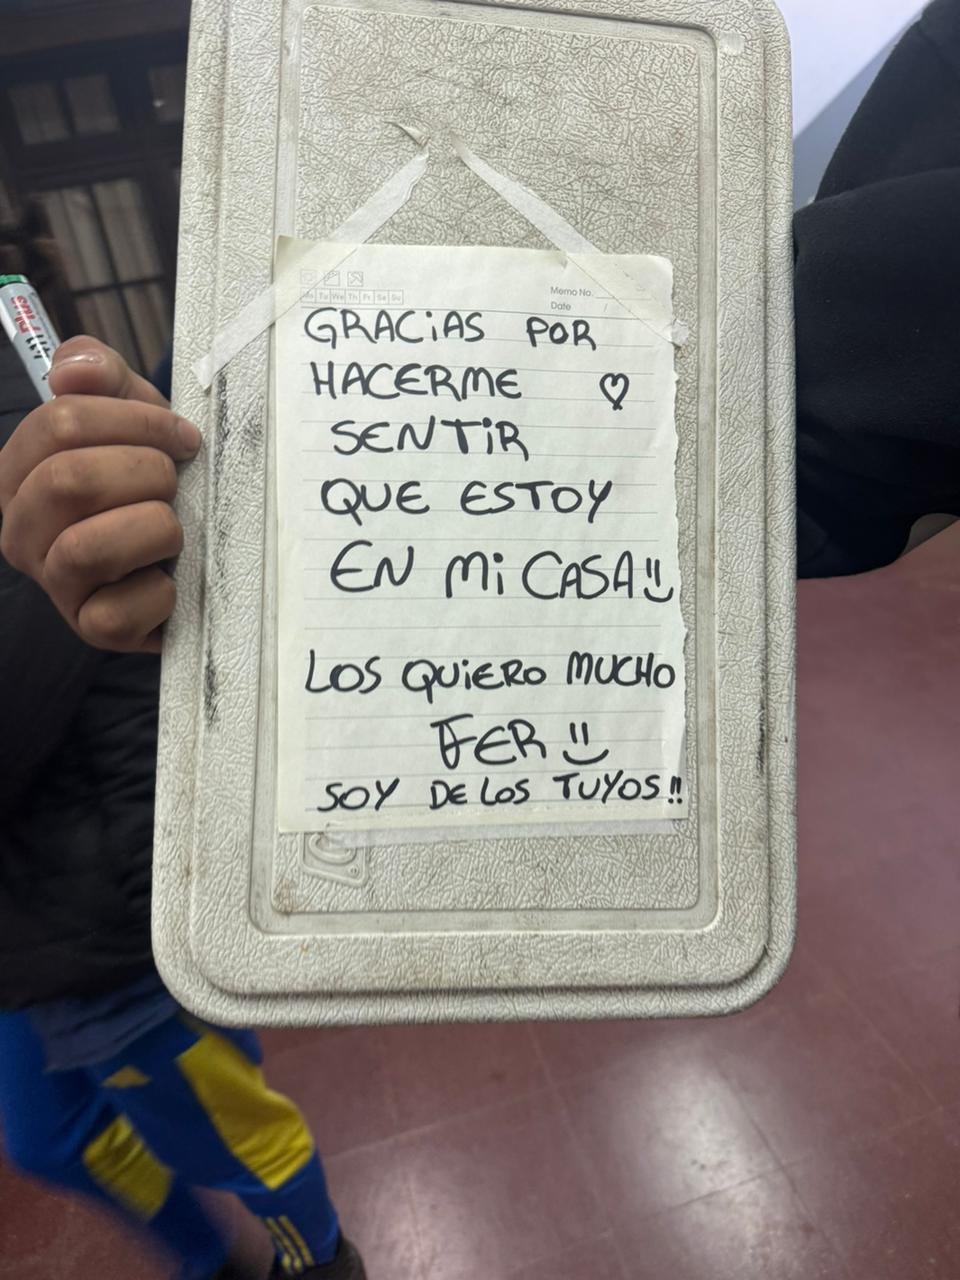 Mo Tu We Th Fr Sa Su
Memo No.
Date /
GRACiAS POR
HACERME ♡
SENTiR
QUE ESTOY
EN MiCASA!!
LOS QUiERO MUCHO
FER
SOY DE LOS TUYOS!!